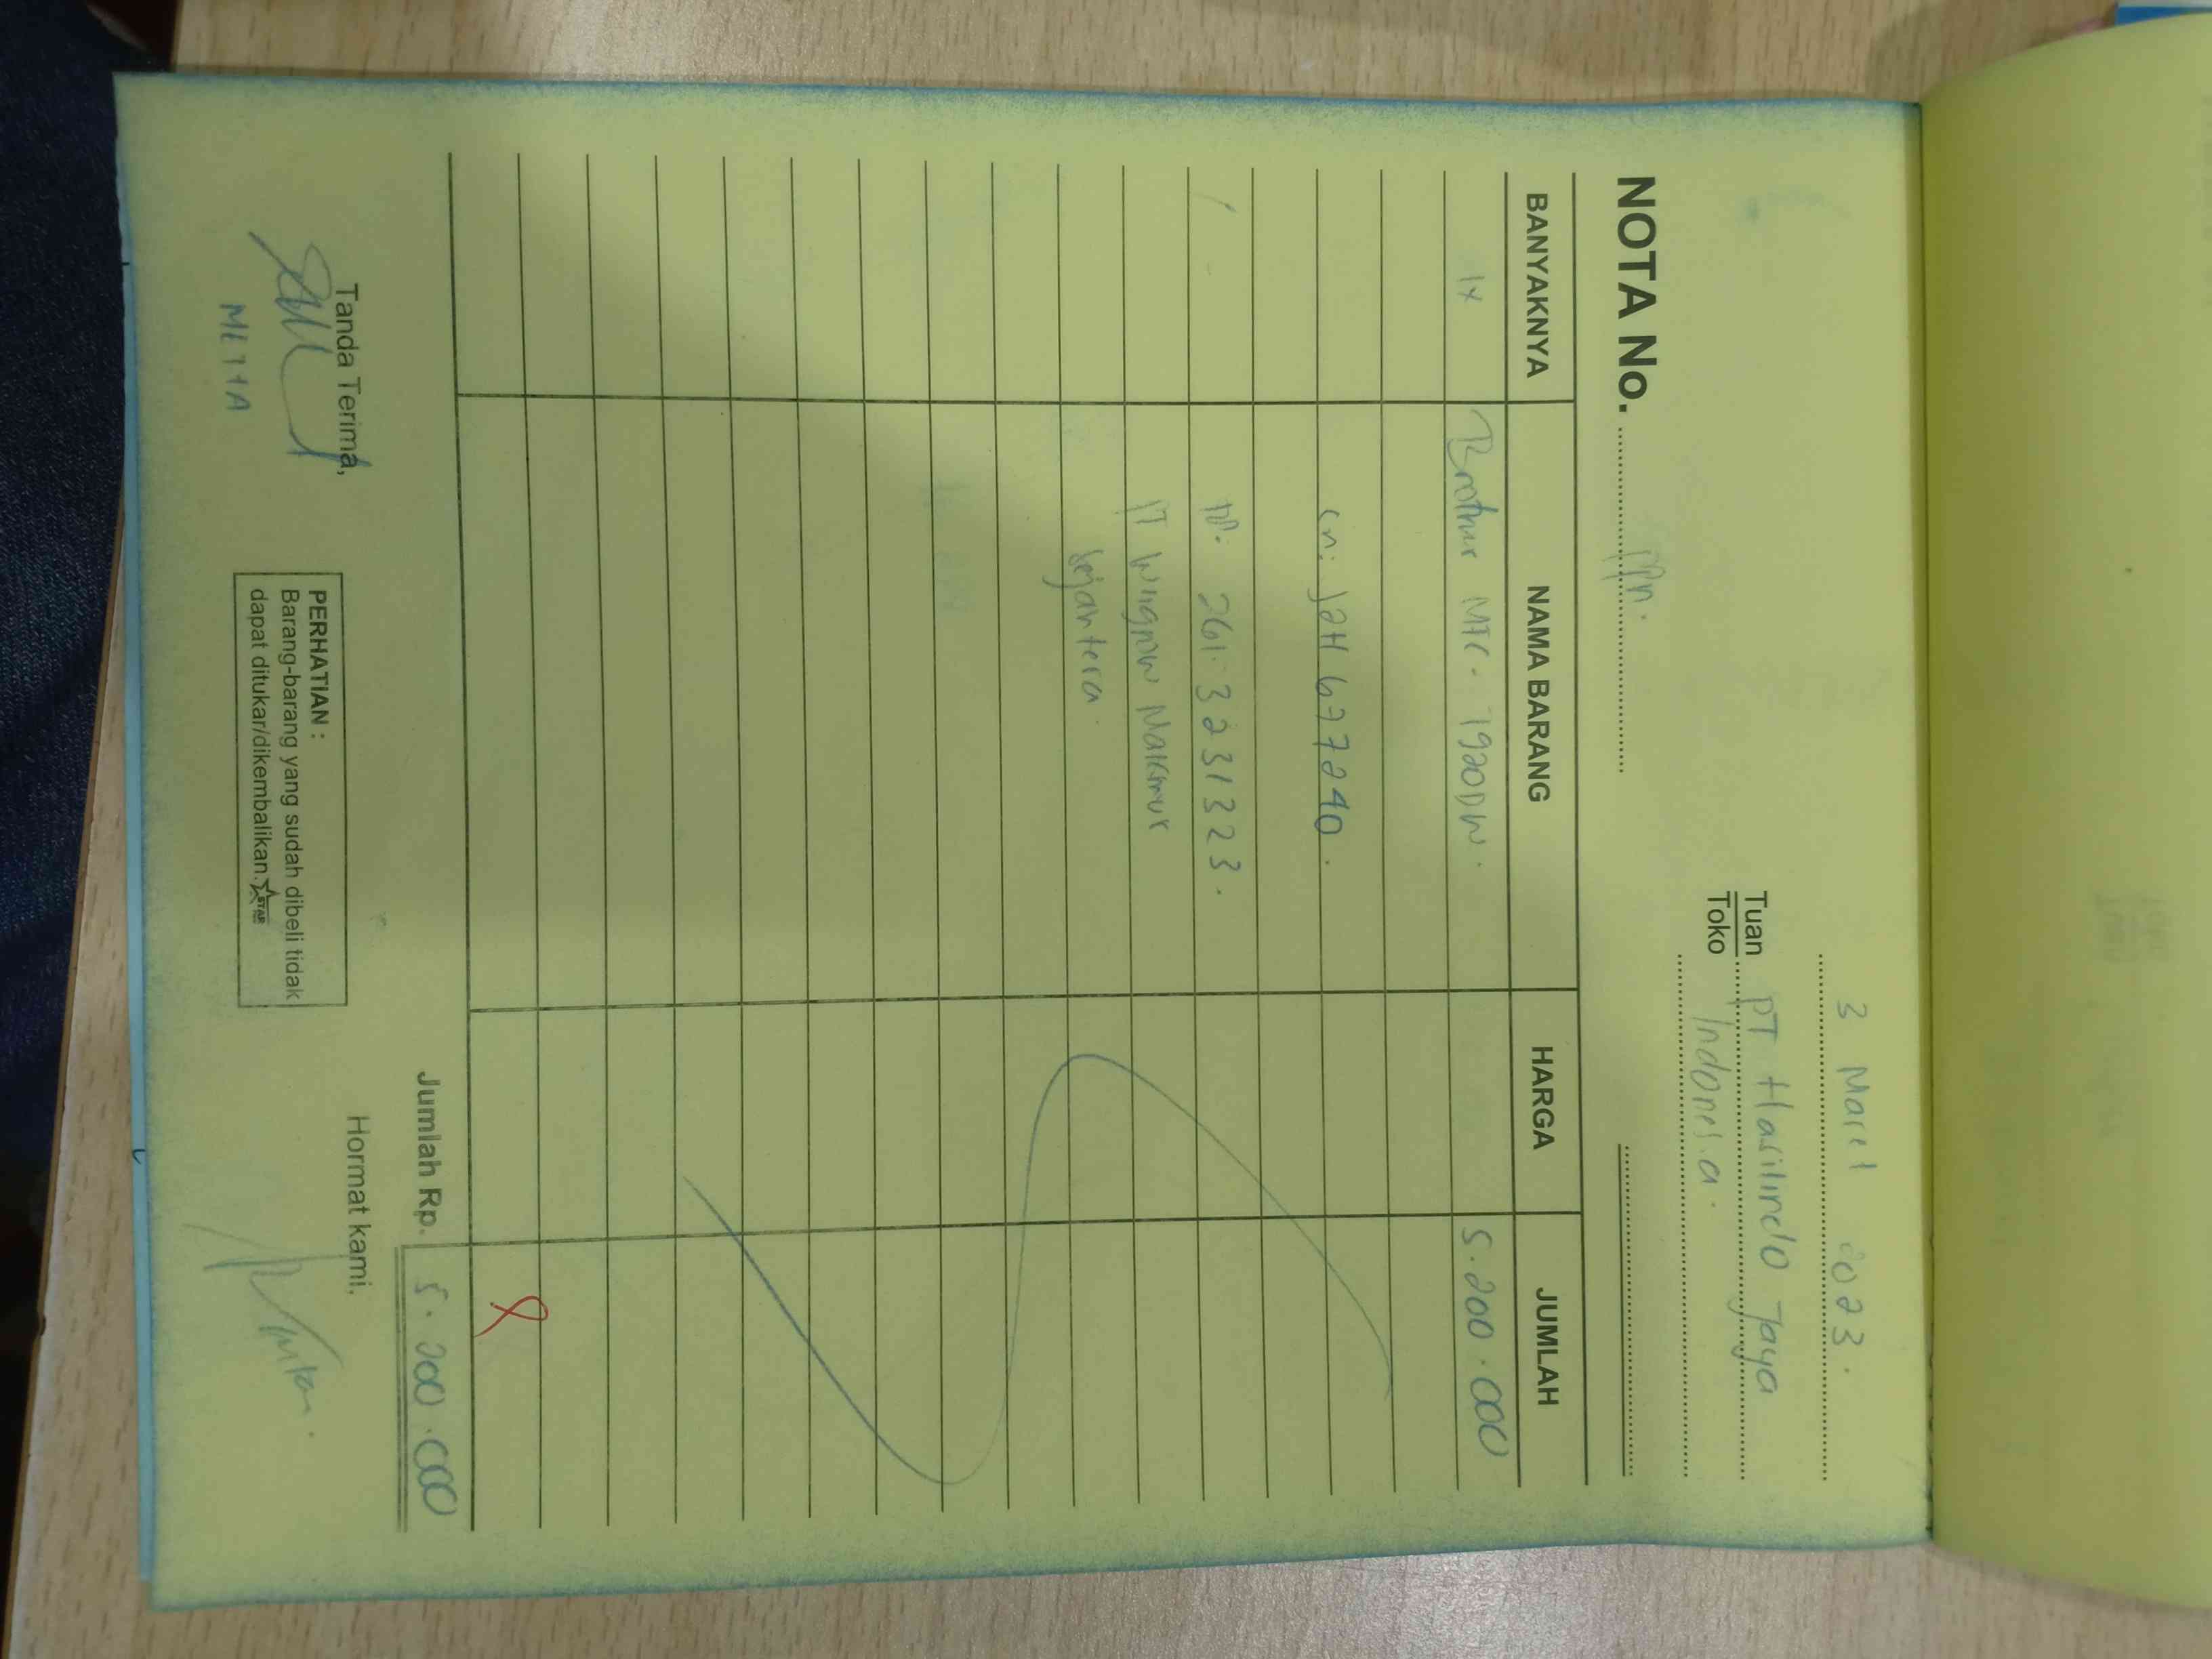 3 Maret 2023.
Tuan PT Hasilindo Jaya
Toko Indonesia.
NOTA No. ppn.
BANYAKNYA NAMA BARANG HARGA JUMLAH
1x Brother MFC- 7920DW. 5.200.000
sn: J2H 677240.
261. 3231323.
PT Makmur
Sejahtera.
Jumlah Rp. 5.200.000
Tanda Terima,
Hormat kami,
PERHATIAN :
Barang-barang yang sudah dibeli tidak
dapat ditukar/dikembalikan.
STAR